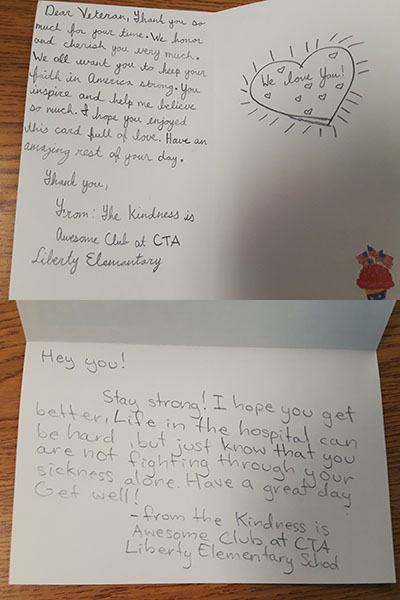 Dear Veteran, Thank you so
much for your time. We honor
and cherish you very much.
We all want you to keep your
faith in America strong. You
inspire and help me believe
so much. I hope you enjoyed
this card full of love. Have an
amazing rest of your day.
Thank you,
From: The Kindness is
Awesome Club at CTA
Liberty Elementary
We love You!
Hey you!
Stay strong! I hope you get
better. Life in the hospital can
be hard, but just know that you
are not fighting through your
sickness alone. Have a great day
Get well!
-from the Kindness is
Awesome Club at CTA
Liberty Elementary School